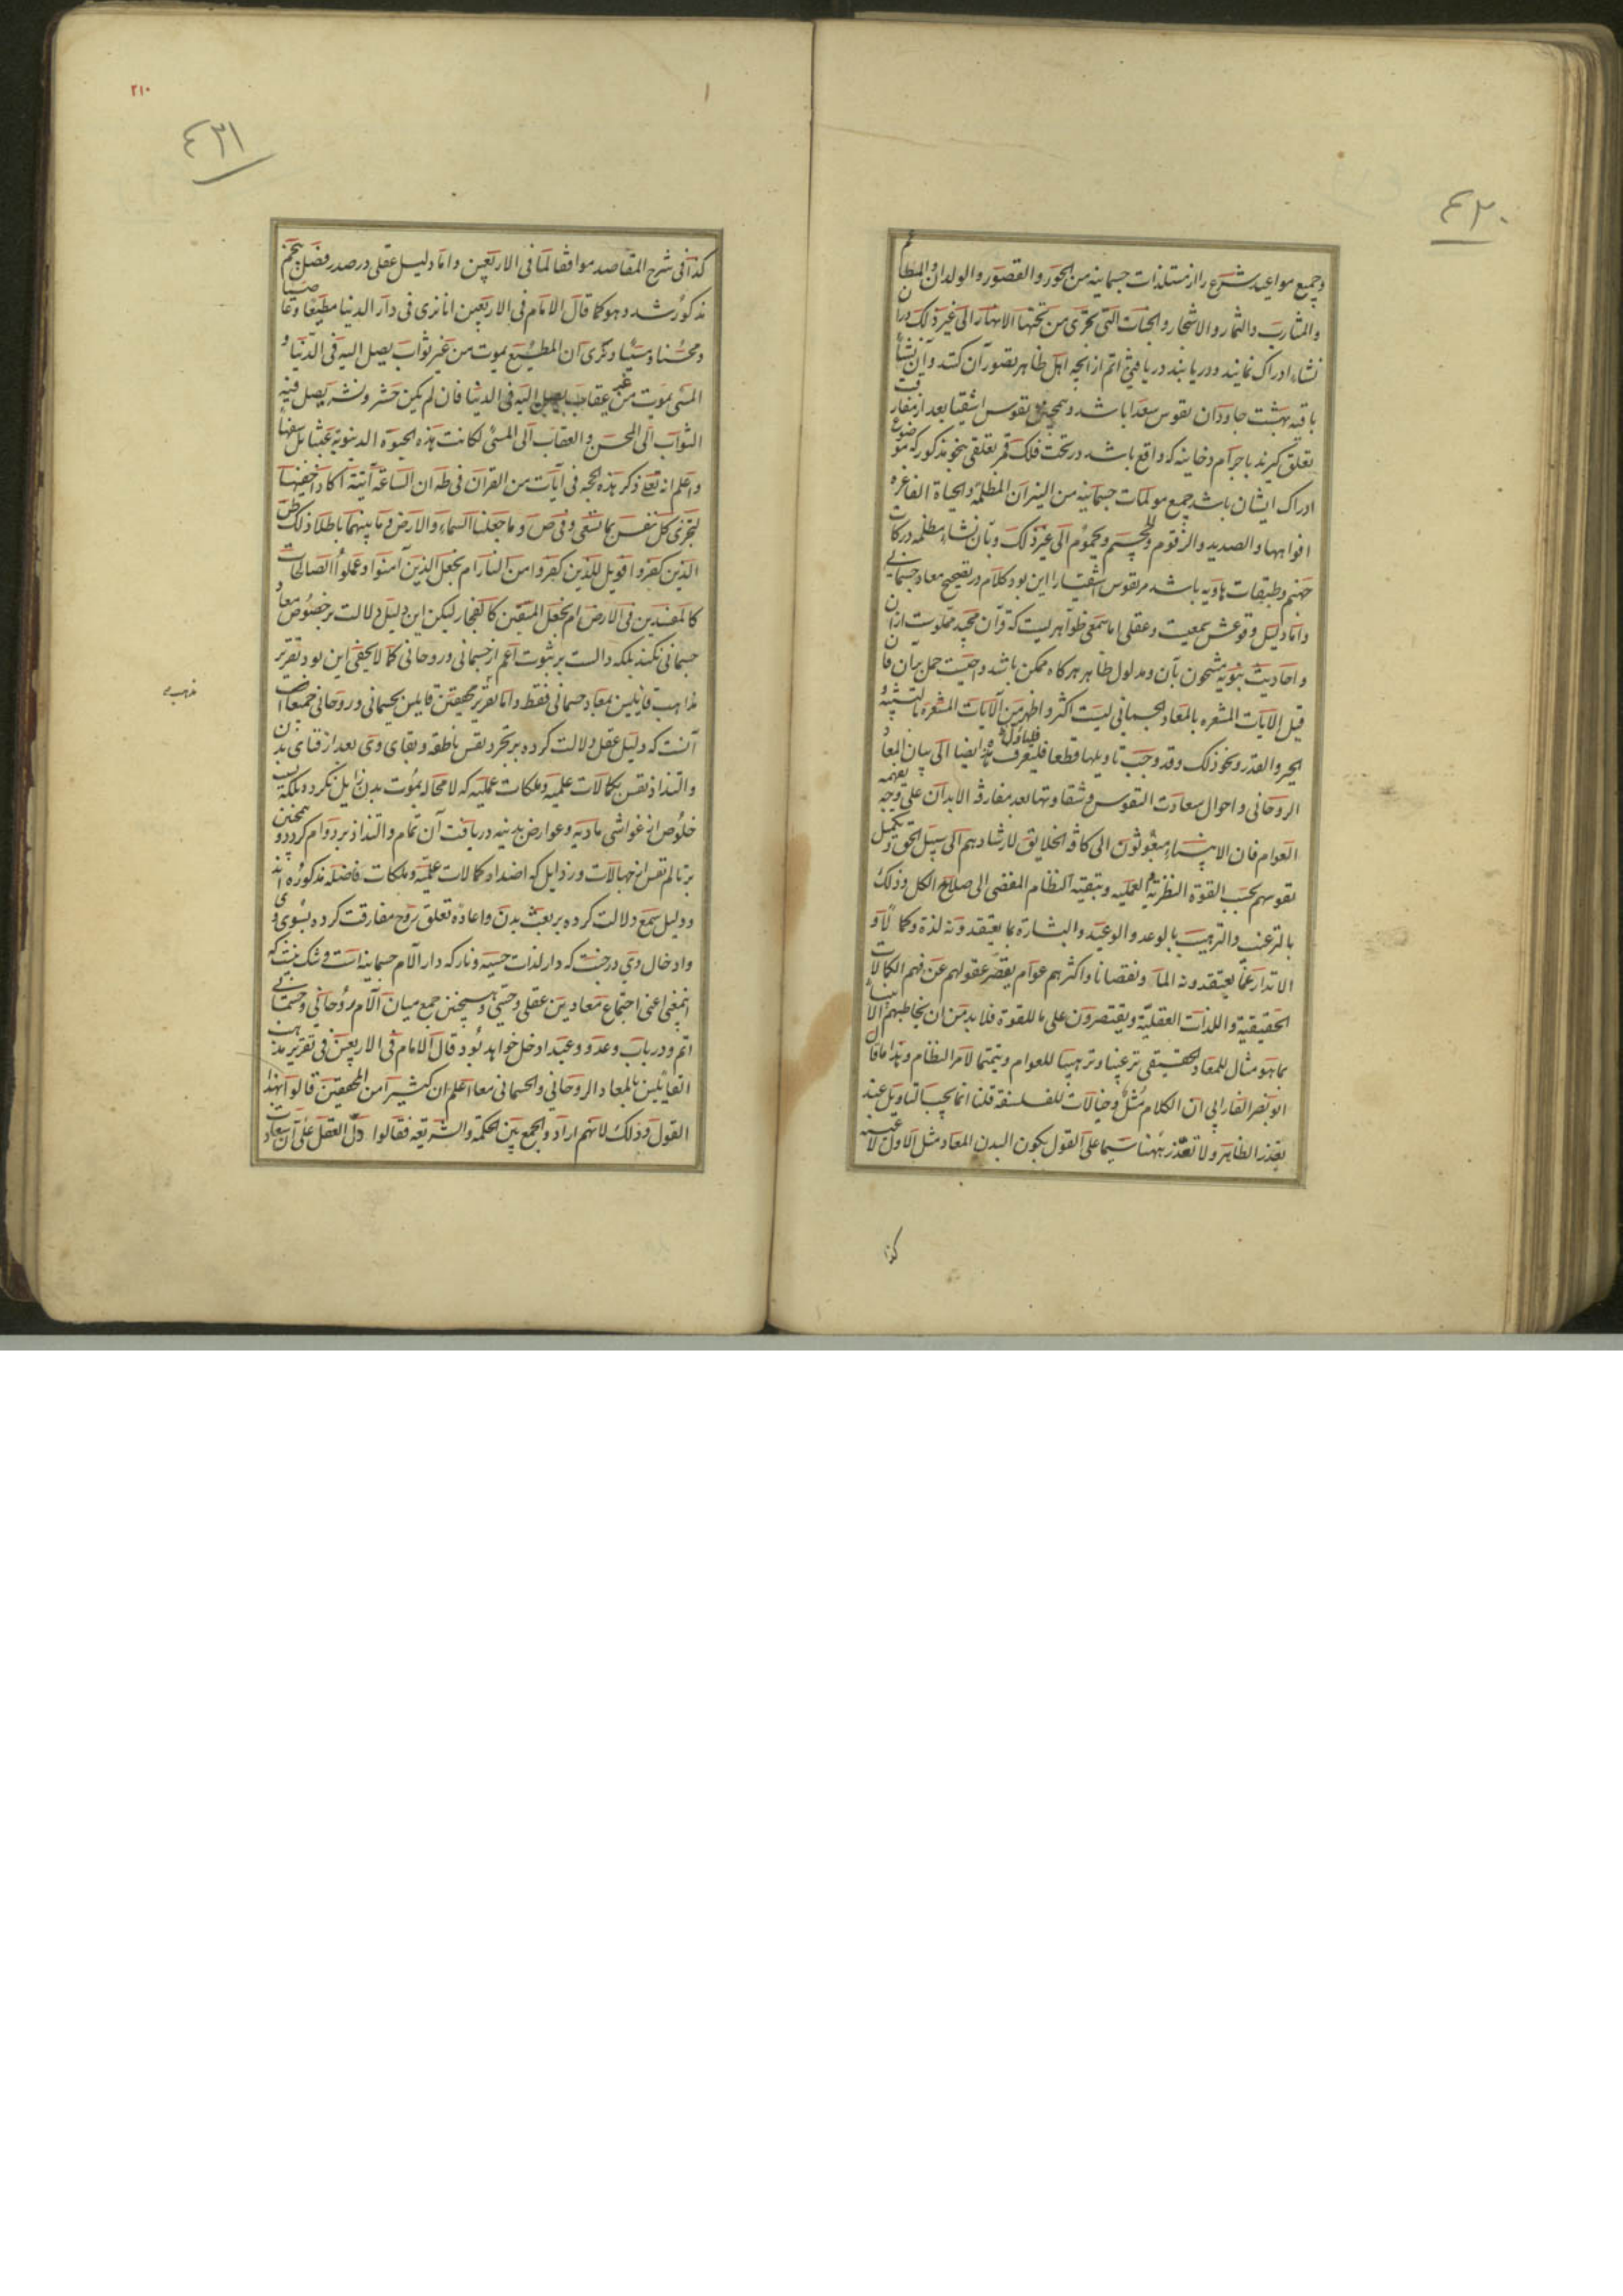 ٤٣٠
وجمیع مواعید شرع را از مستلذات جسمانیه من الحور والقصور والولدان والمطاعم
والمشارب والثمار والاشجار والجنات التی تجری من تحتها الانهار الی غیر ذلک در آن
نشاء ادراک نمایند و دریابند دریافتی اتم از آنچه اهل ظاهر تصور آن کنند و آن نشاء
باقیه بهشت جاودان نفوس سعدا باشد و همچنین نفوس اشقیا بعد از مفارقت
تعلق گیرند باجرام دخانیه که واقع باشد در تحت فلک قمر تعلقی بنحو مذکور که موضوع
ادراک ایشان باشد جمیع مولمات جسمانیه من النیران المظلمة والحیاة الفاغره
افواهها والصدید والزقوم والحمیم ویحموم الی غیر ذلک و بآن نشاء مظلمه درکات
جهنم وطبقات هاویه باشد مر نفوس اشقیا را این بود کلام در تصحیح معاد جسمانی
واما دلیل وقوعش سمعیست و عقلی اما سمعی ظواهریست که قرآن مجید مملوست از آن
واحادیث نبویه مشحون بآن و مدلول ظاهر هرگاه ممکن باشد واجبست حمل بر آن فان
قیل الآیات المشعره بالمعاد الجسمانی لیست اکثر واظهر من الآیات المشعره بالتشبیه و
الجبر والقدر ونحو ذلک وقد وجب تاویلها قطعا فلیصرف هذه ایضا الی بیان المعاد
الروحانی واحوال سعادت النفوس وشقاوتها بعد مفارقة الابدان علی وجه یفهمه
العوام فان الانبیاء مبعوثون الی کافة الخلایق لارشادهم الی سبیل الحق وتکمیل
نفوسهم بحسب القوة النظریة والعملیه وتبقیه النظام المفضی الی صلاح الکل وذلک
بالترغیب والترهیب بالوعد والوعید والبشارة بما یعتقدونه لذة وکمالا و
الانذار عما یعتقدونه الما ونقصانا واکثرهم عوام یقصر عقولهم عن فهم الکمالات
الحقیقیة واللذات العقلیّة ویقتصرون علی ما للقوة فلا بد من ان یخاطبهم الانبیاء
بما هو مثال للمعاد الحقیقی ترغیبا وترهیبا للعوام وتتمیما لامر النظام وهذا ما قال
ابونصر الفارابی ان الکلام مثل وخیالات للفلسفة قلنا انما یجب التاویل عند
تعذر الظاهر ولا تعذر ههنا سیما علی القول بکون البدن المعاد مثل الاول لا عینه
کذا
٢١٠
٤٣١
کذا فی شرح المقاصد موافقا لما فی الاربعین واما دلیل عقلی در صدر فصل پنجم
مذکور شد وهو کما قال الامام فی الاربعین انا نری فی دار الدنیا مطیعا وعاصیا
ومحسنا ومسیئا ونری ان المطیع یموت من غیر ثواب یصل الیه فی الدنیا و
المسی یموت من غیر عقاب یصل الیه فی الدنیا فان لم یکن حشر ونشر یصل فیه
الثواب الی المحسن والعقاب الی المسئ لکانت هذه الحیوة الدنیویة عبثا بل سفها
واعلم انه تعالی ذکر هذه الحجه فی آیات من القرآن فی طه ان الساعة آتیة اکاد اخفیها
لتجزی کل نفس بما تسعی وفی ص وما خلقنا السماء والارض وما بینهما باطلا ذلک ظن
الذین کفروا فویل للذین کفروا من النار ام نجعل الذین آمنوا وعملوا الصالحات
کالمفسدین فی الارض ام نجعل المتقین کالفجار لیکن این دلیل دلالت بر خصوص معاد
جسمانی نکند بلکه دالست بر ثبوت اعم از جسمانی و روحانی کما لا یخفی این بود تقریر
مذاهب قایلین بمعاد جسمانی فقط واما تقریر محققین قایلین بجسمانی و روحانی جمیعا
آنست که دلیل عقل دلالت کرده بر تجرد نفس ناطقه و بقای وی بعد از فنای بدن
والتذاذ نفس بکمالات علمیه و ملکات عملیه که لا محاله بموت بدن زایل نگردد بلکه بسبب
خلوص از غواشی مادیه و عوارض بدنیه دریافت آن تمام والتذاذ بر دوام گردد و همچنین
بر تالم نفس از جهالات و رذایل که اضداد کمالات علمیّه و ملکات فاضله مذکوره اند
ودلیل سمع دلالت کرده بر بعث بدن و اعادهٔ تعلق روح مفارقت کرده بسوی وی
وادخال وی در جنت که دار لذات حسیه و نار که دار آلام جسمانیه است و شک نیست که
اینمعنی اعنی اجتماع معادین عقلی و حسی و همچنین جمع میان آلام روحانی و جسمانی
اتم و در باب وعد و وعید ادخل خواهد بود قال الامام فی الاربعین فی تقریر مذهب
القائلین بالمعاد الروحانی والجسمانی معا اعلم ان کثیرا من المحققین قالوا بهذا
القول وذلک لانهم ارادوا الجمع بین الحکمة والشریعه فقالوا دل العقل علی ان سعادت